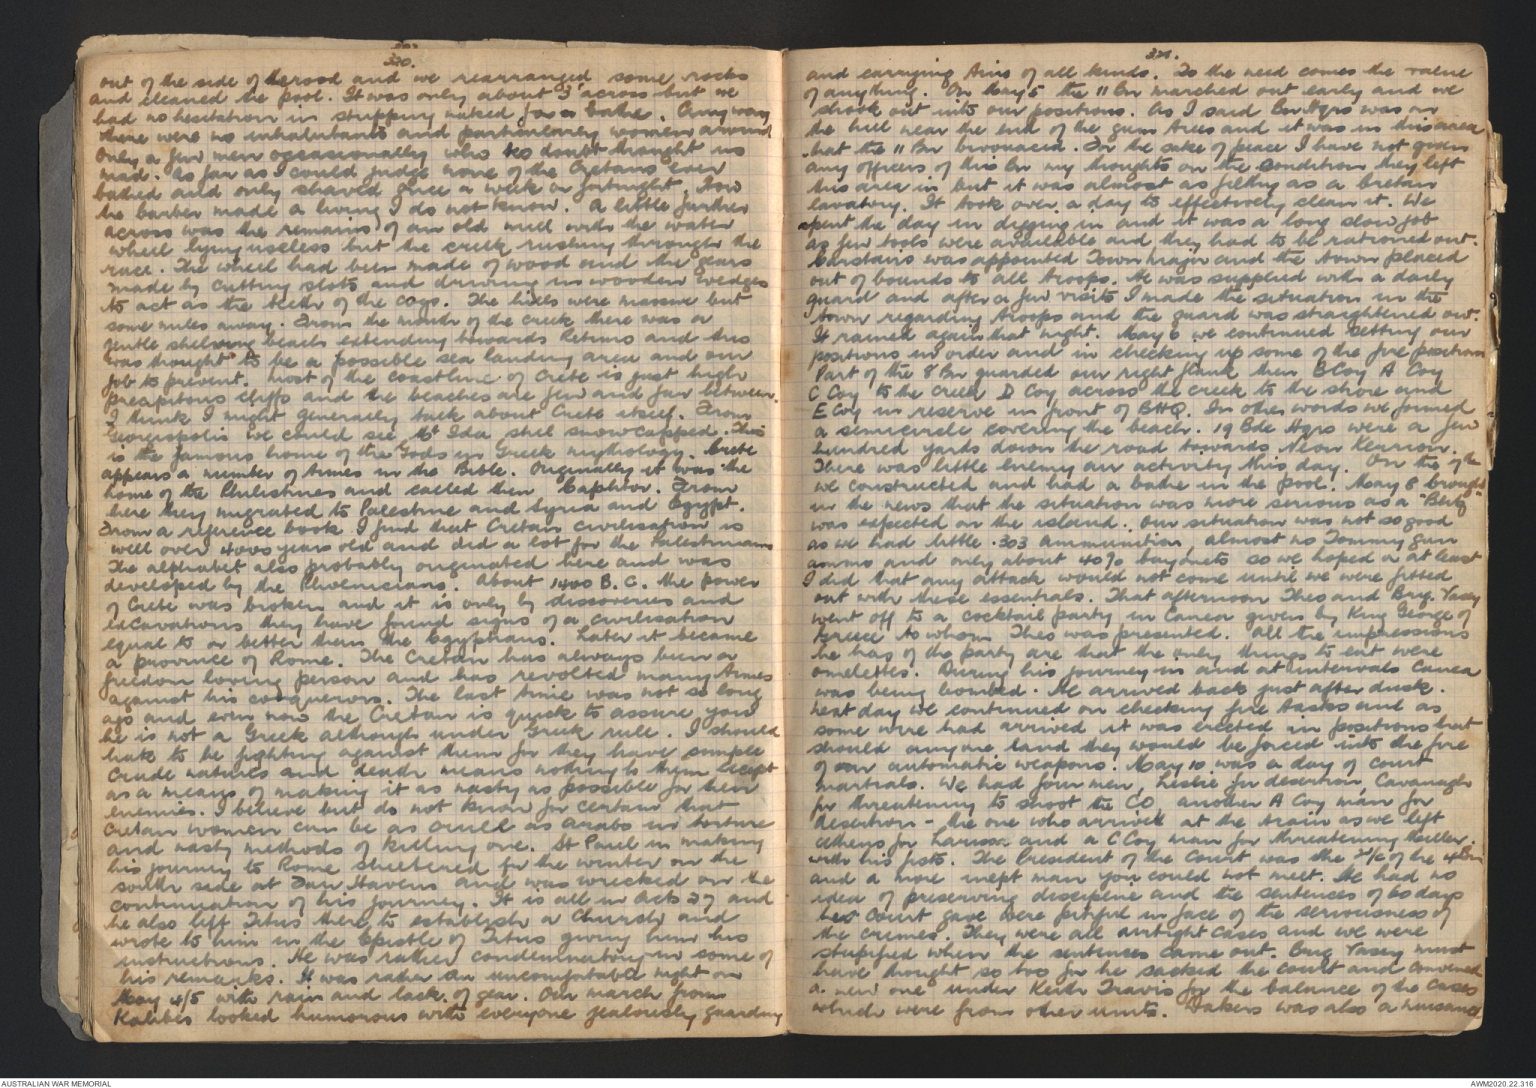 320.
out of the side of the road and we rearranged some rocks
and cleaned the pool. It was only about 3' across but we
had no hesitation in stripping naked for a bathe. Anyway
there were no inhabitants and particularly women around
only a few men occasionally who no doubt thought us
mad. As far as I could judge none of the Cretans ever
bathed and only shaved once a week or fortnight. How
the barber made a living I do not know. A little further
across was the remains of an old mill with the water
wheel lying useless but the creek rushing through the
race. The wheel had been made of wood and the gears
made by cutting slots and driving in wooden wedges
to act as the teeth of the cogs. The hills were massive but
some miles away. From the mouth of the creek there was a
gentle shelving beach extending towards Retimo and this
was thought to be a possible sea landing area and our
job to prevent. Most of the coastline of Crete is just high
precipitous cliffs and the beaches are few and far between.
I think I might generally talk about Crete itself. From
Georgiopolis we could see Mt Ida still snowcapped. This
is the famous home of the Gods in Greek mythology. Crete
appears a number of times in the Bible. Originally it was the
home of the Philistines and called then Caphtor. From
here they migrated to Palestine and Syria and Egypt.
From a reference book I find that Cretan civilisation is
well over 4000 years old and did a lot for the Palestinians
The alphabet also probably originated here and was
developed by the Phoenicians. About 1400 B.C. the power
of Crete was broken and it is only by discoveries and
excavations they have found signs of a civilisation
equal to or better than the Egyptians. Later it became
a province of Rome. The Cretan has always been a
freedom loving person and has revolted many times
against his conquerors. The last time was not so long
ago and even now the Cretan is quick to assure you
he is not a Greek although under Greek rule. I should
hate to be fighting against them for they have simple
crude natures and death means nothing to them except
as a means of making it as nasty as possible for their
enemies. I believe but do not know for certain that
Cretan women can be as cruel as Arabs in torture
and nasty methods of killing one. St Paul in making
his journey to Rome sheltered for the winter on the
south side at Fair Havens and was wrecked on the
continuation of his journey. It is all in Acts 27 and
he also left Titus there to establish a Church and
wrote to him in the Epistle of Titus giving him his
instructions. He was rather condemnatory in some of
his remarks. It was rather an uncomfortable night on
May 4/5 with rain and lack of gear. Our march from
Kalibes looked humorous with everyone jealously guarding
321.
and carrying tins of all kinds. To the need comes the value
of anything. On May 5 the 11 Bn marched out early and we
shook out into our positions. As I said Bn Hqrs was on
the hill near the end of the gum trees and it was in this area
that the 11 Bn bivouaced. For the sake of peace I have not given
any officers of this Bn my thoughts on the condition they left
this area in but it was almost as filthy as a Cretan
lavatory. It took over a day to effectively clean it. We
spent the day in digging in and it was a long slow job
as few tools were available and they had to be rationed out.
Carstairs was appointed Town Major and the town placed
out of bounds to all troops. He was supplied with a daily
guard and after a few visits I made the situation in the
town regarding troops and the guard was straightened out.
It rained again that night. May 6 we continued setting our
positions in order and in checking up some of the fire positions
Part of the 8 Bn guarded our right flank then B Coy A Coy
C Coy to the creek D Coy across the creek to the shore and
E Coy in reserve in front of BHQ. In other words we formed
a semicircle covering the beach. 19 Bde Hqrs were a few
hundred yards down the road towards Neon Kerrion.
There was little enemy air activity this day. On the 7th
we constructed and had a bathe in the pool. May 8 brought
in the news that the situation was more serious as a "Blitz"
was expected on the island. Our situation was not so good
as we had little .303 ammunition, almost no Tommy gun
ammo and only about 40% bayonets so we hoped or at least
I did that any attack would not come until we were fitted
out with these essentials. That afternoon Theo and Brig. Vasey
went off to a cocktail party in Canea given by King George of
Greece to whom Theo was presented. All the impressions
he has of the party are that the only things to eat were
omelettes. During his journey in and at intervals Canea
was being bombed. He arrived back just after dusk.
Next day we continued on checking fire tasks and as
some wire had arrived it was erected in positions that
should anyone land they would be forced into the fire
of our automatic weapons. May 10 was a day of court
martials. We had four men, Leslie for desertion, Cavanagh
for threatening to shoot the CO, another A Coy man for
desertion - the one who arrived at the train as we left
Athens for Larissa and a C Coy man for threatening
with his fists. The President of the Court was the 2/c of the 4th Bn
and a more inept man you could not meet. He had no
idea of preserving discipline and the sentences of 60 days
his Court gave were pitiful in face of the seriousness of
the crimes. They were all airtight cases and we were
stupified when the sentences came out. Brig Vasey must
have thought so too for he sacked the court and convened
a new one under Keith Travis for the balance of the cases
which were from other units. Dakers was also a nuisance
AUSTRALIAN WAR MEMORIAL
AWM2020.22.316